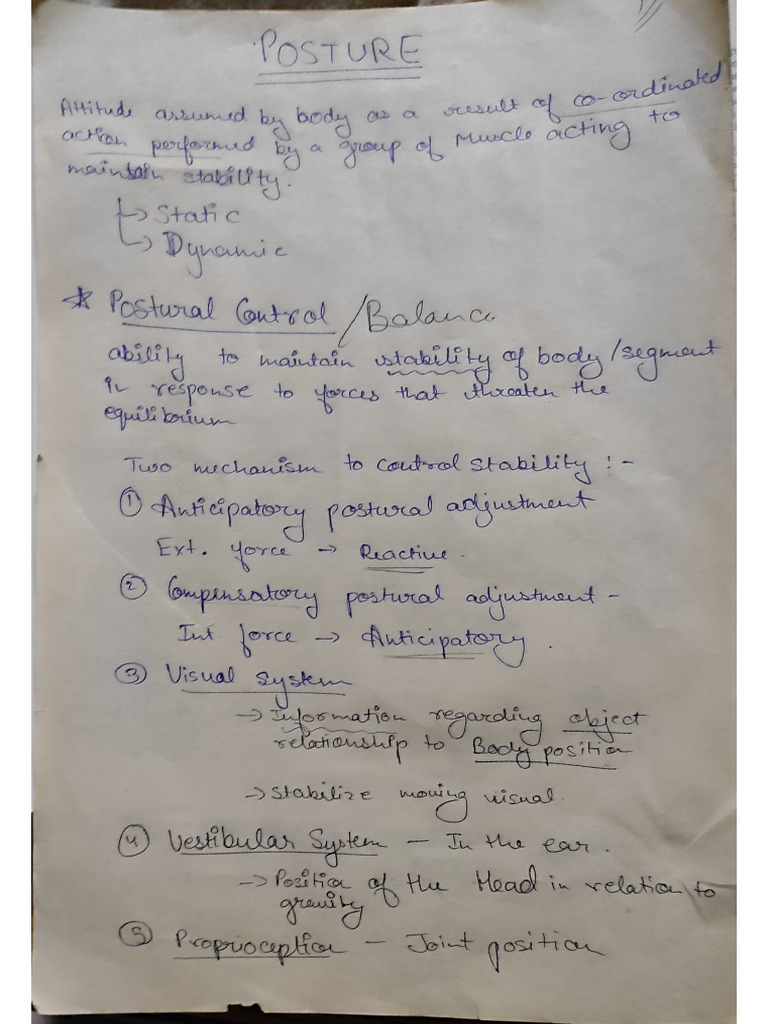 POSTURE
Attitude assumed by body as a result of co-ordinated
action performed by a group of Muscle acting to
maintain stability.
↳ Static
↳ Dynamic
* Postural Control / Balance
ability to maintain stability of body/segment
in response to forces that threaten the
equilibrium
Two mechanism to control stability :-
① Anticipatory postural adjustment
Ext. force → Reactive.
② Compensatory postural adjustment -
Int. force → Anticipatory.
③ Visual System
→ Information regarding object
relationship to Body position
→ Stabilize moving visual.
④ Vestibular System - In the ear.
→ Position of the Head in relation to
gravity
⑤ Proprioception - Joint position